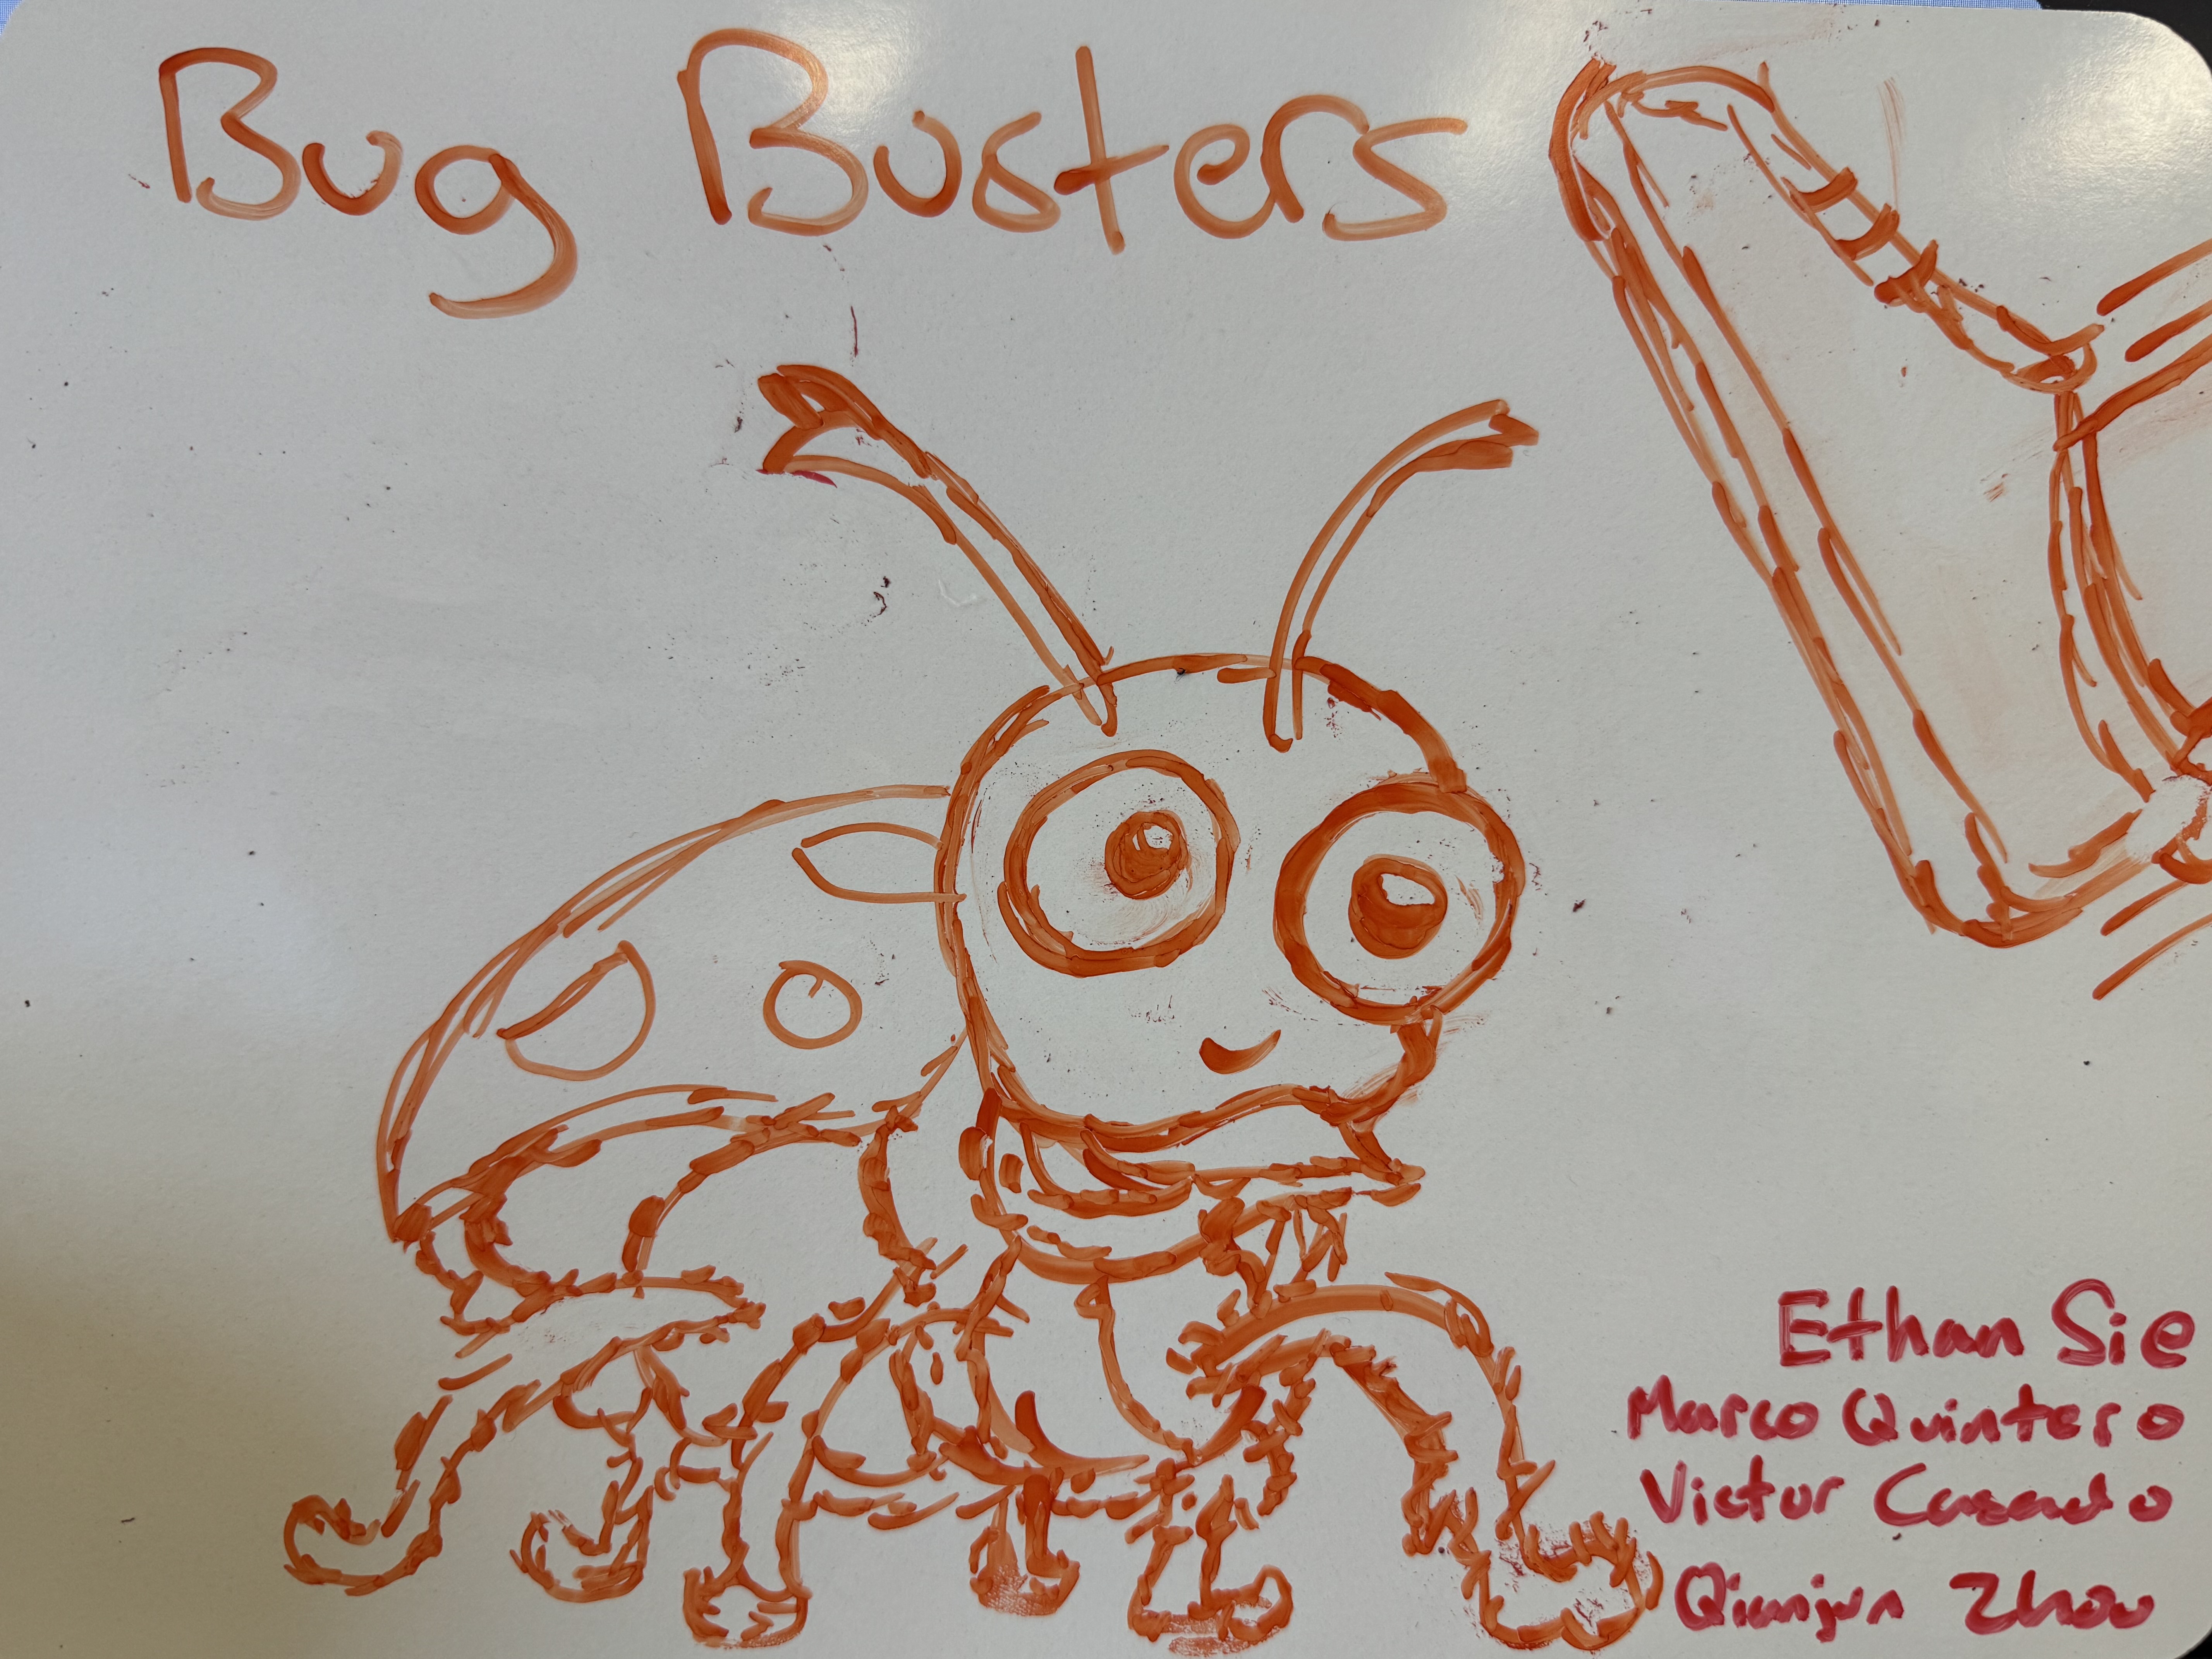 Bug Busters
Ethan Sie
Marco Quintero
Victor Casado
Qianjun Zhou